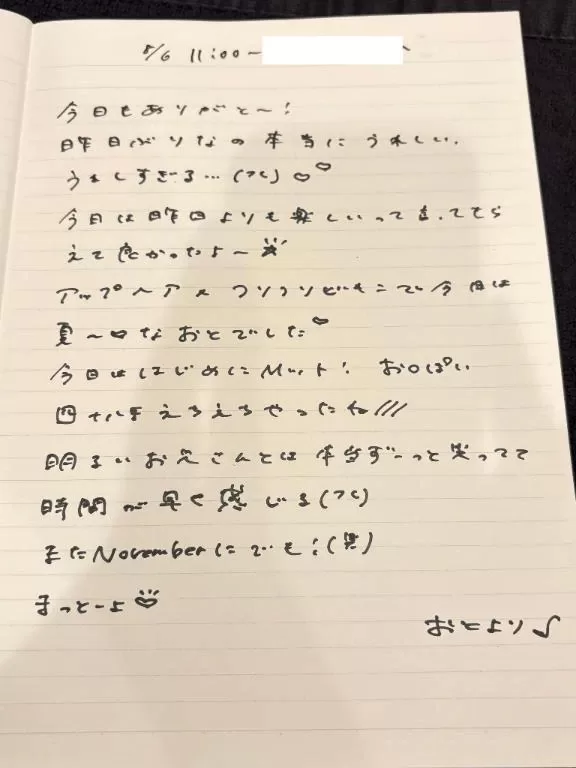 5/6 11:00〜
今日もありがと〜!
昨日ぶりなの本当にうれしい、
うれしすぎる…(泣)♡♡
今日は昨日よりも楽しいって言ってもら
えて良かったよ〜
アップヘアメ フリフリビキニで今日は
夏〜♡なおとでした♡
今日ははじめにMット! おOぱい
四 えろえろやったね///
明るいお兄さんとは本当ず〜っと笑ってて
時間が早く感じる(泣)
またNovemberにでも!(笑)
まっとーよ♡
おとより♪